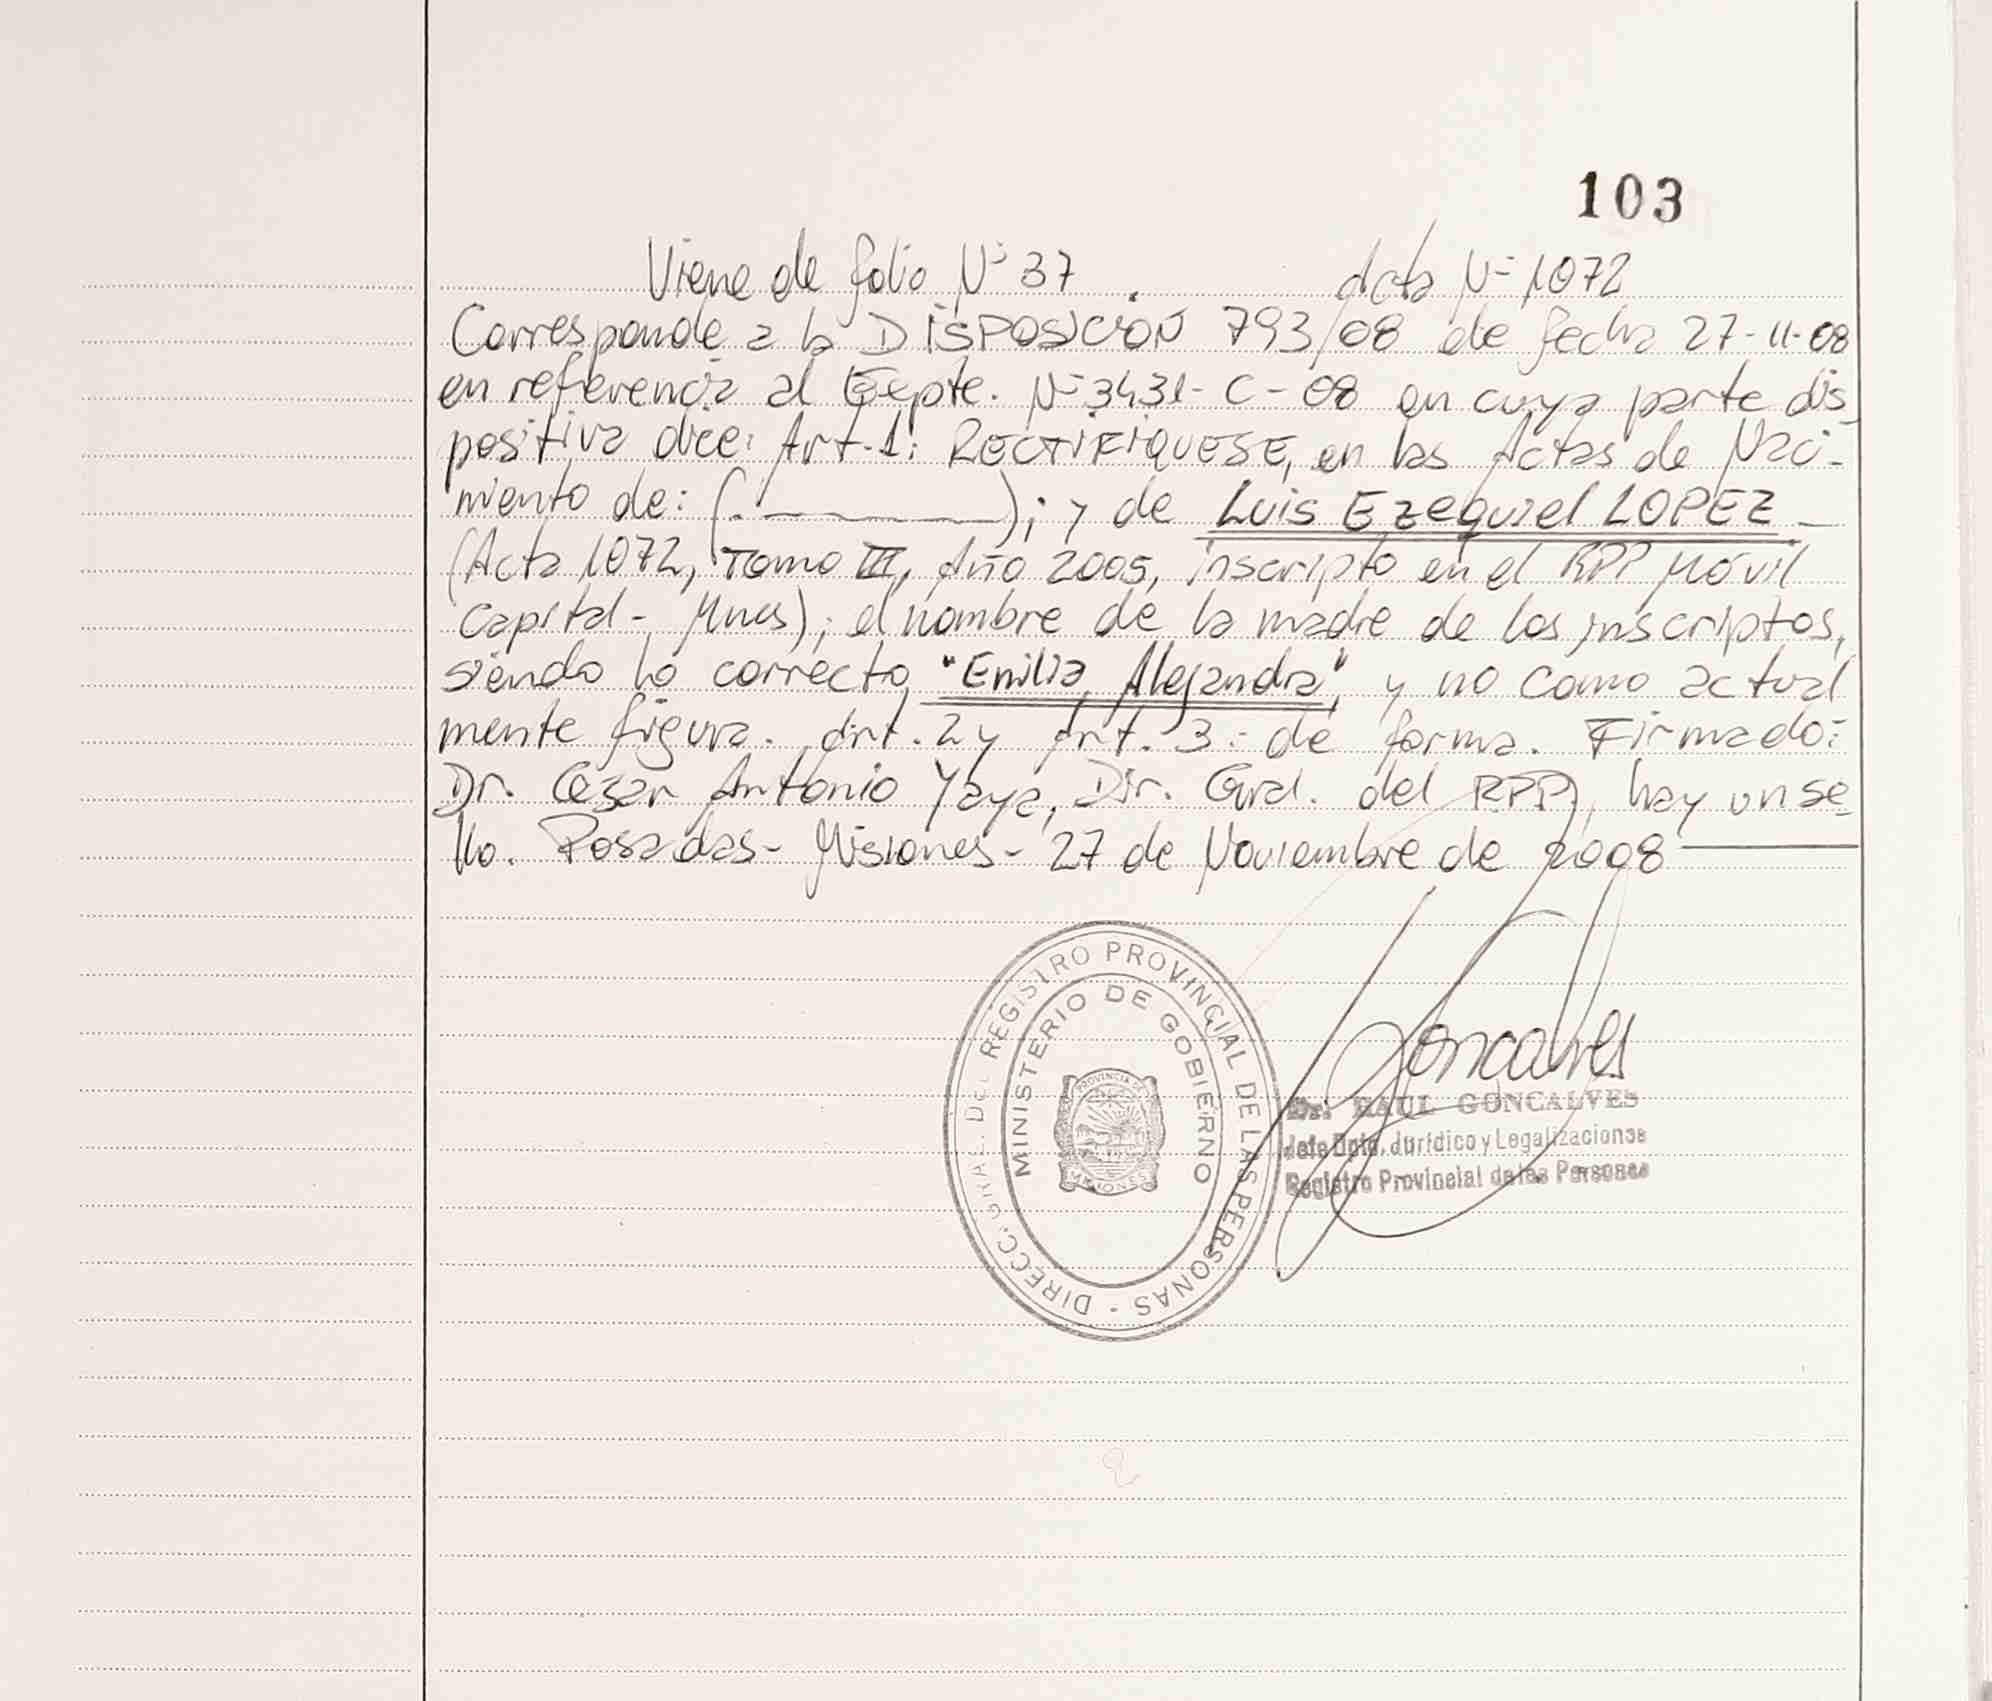 103
Viene de folio Nº 37. Acta Nº 1072
Corresponde a la DISPOSICION 793/08 de fecha 27-11-08
en referencia al Expte. Nº 3431-C-08 en cuya parte dis
positiva dice: Art.1: RECTIFIQUESE, en las Actas de Naci-
miento de: (.————); y de Luis Ezequiel LOPEZ
(Acta 1072, Tomo III, Año 2005, inscripto en el RPP Móvil
Capital-Mnes); el nombre de la madre de los inscriptos,
siendo lo correcto "Emilia Alejandra", y no como actual
mente figura. Art. 2 y Art. 3.- de forma. Firmado:
Dr. Cesar Antonio Yaya, Dir. Gral. del RPP, hay un se
llo. Posadas-Misiones-27 de Noviembre de 2008
DIRECC. GRAL. DEL REGISTRO PROVINCIAL DE LAS PERSONAS -
MINISTERIO DE GOBIERNO
PROVINCIA DE
MISIONES
Goncalves
Dr. RAUL GONCALVES
Jefe Dpto. Jurídico y Legalizaciones
Registro Provincial de las Personas